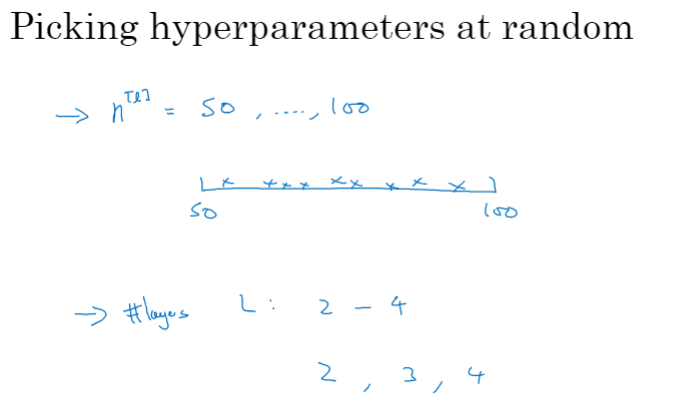 Picking hyperparameters at random
→ n^[l] = 50, ...., 100
50 100
→ #layers L : 2 - 4
2, 3, 4